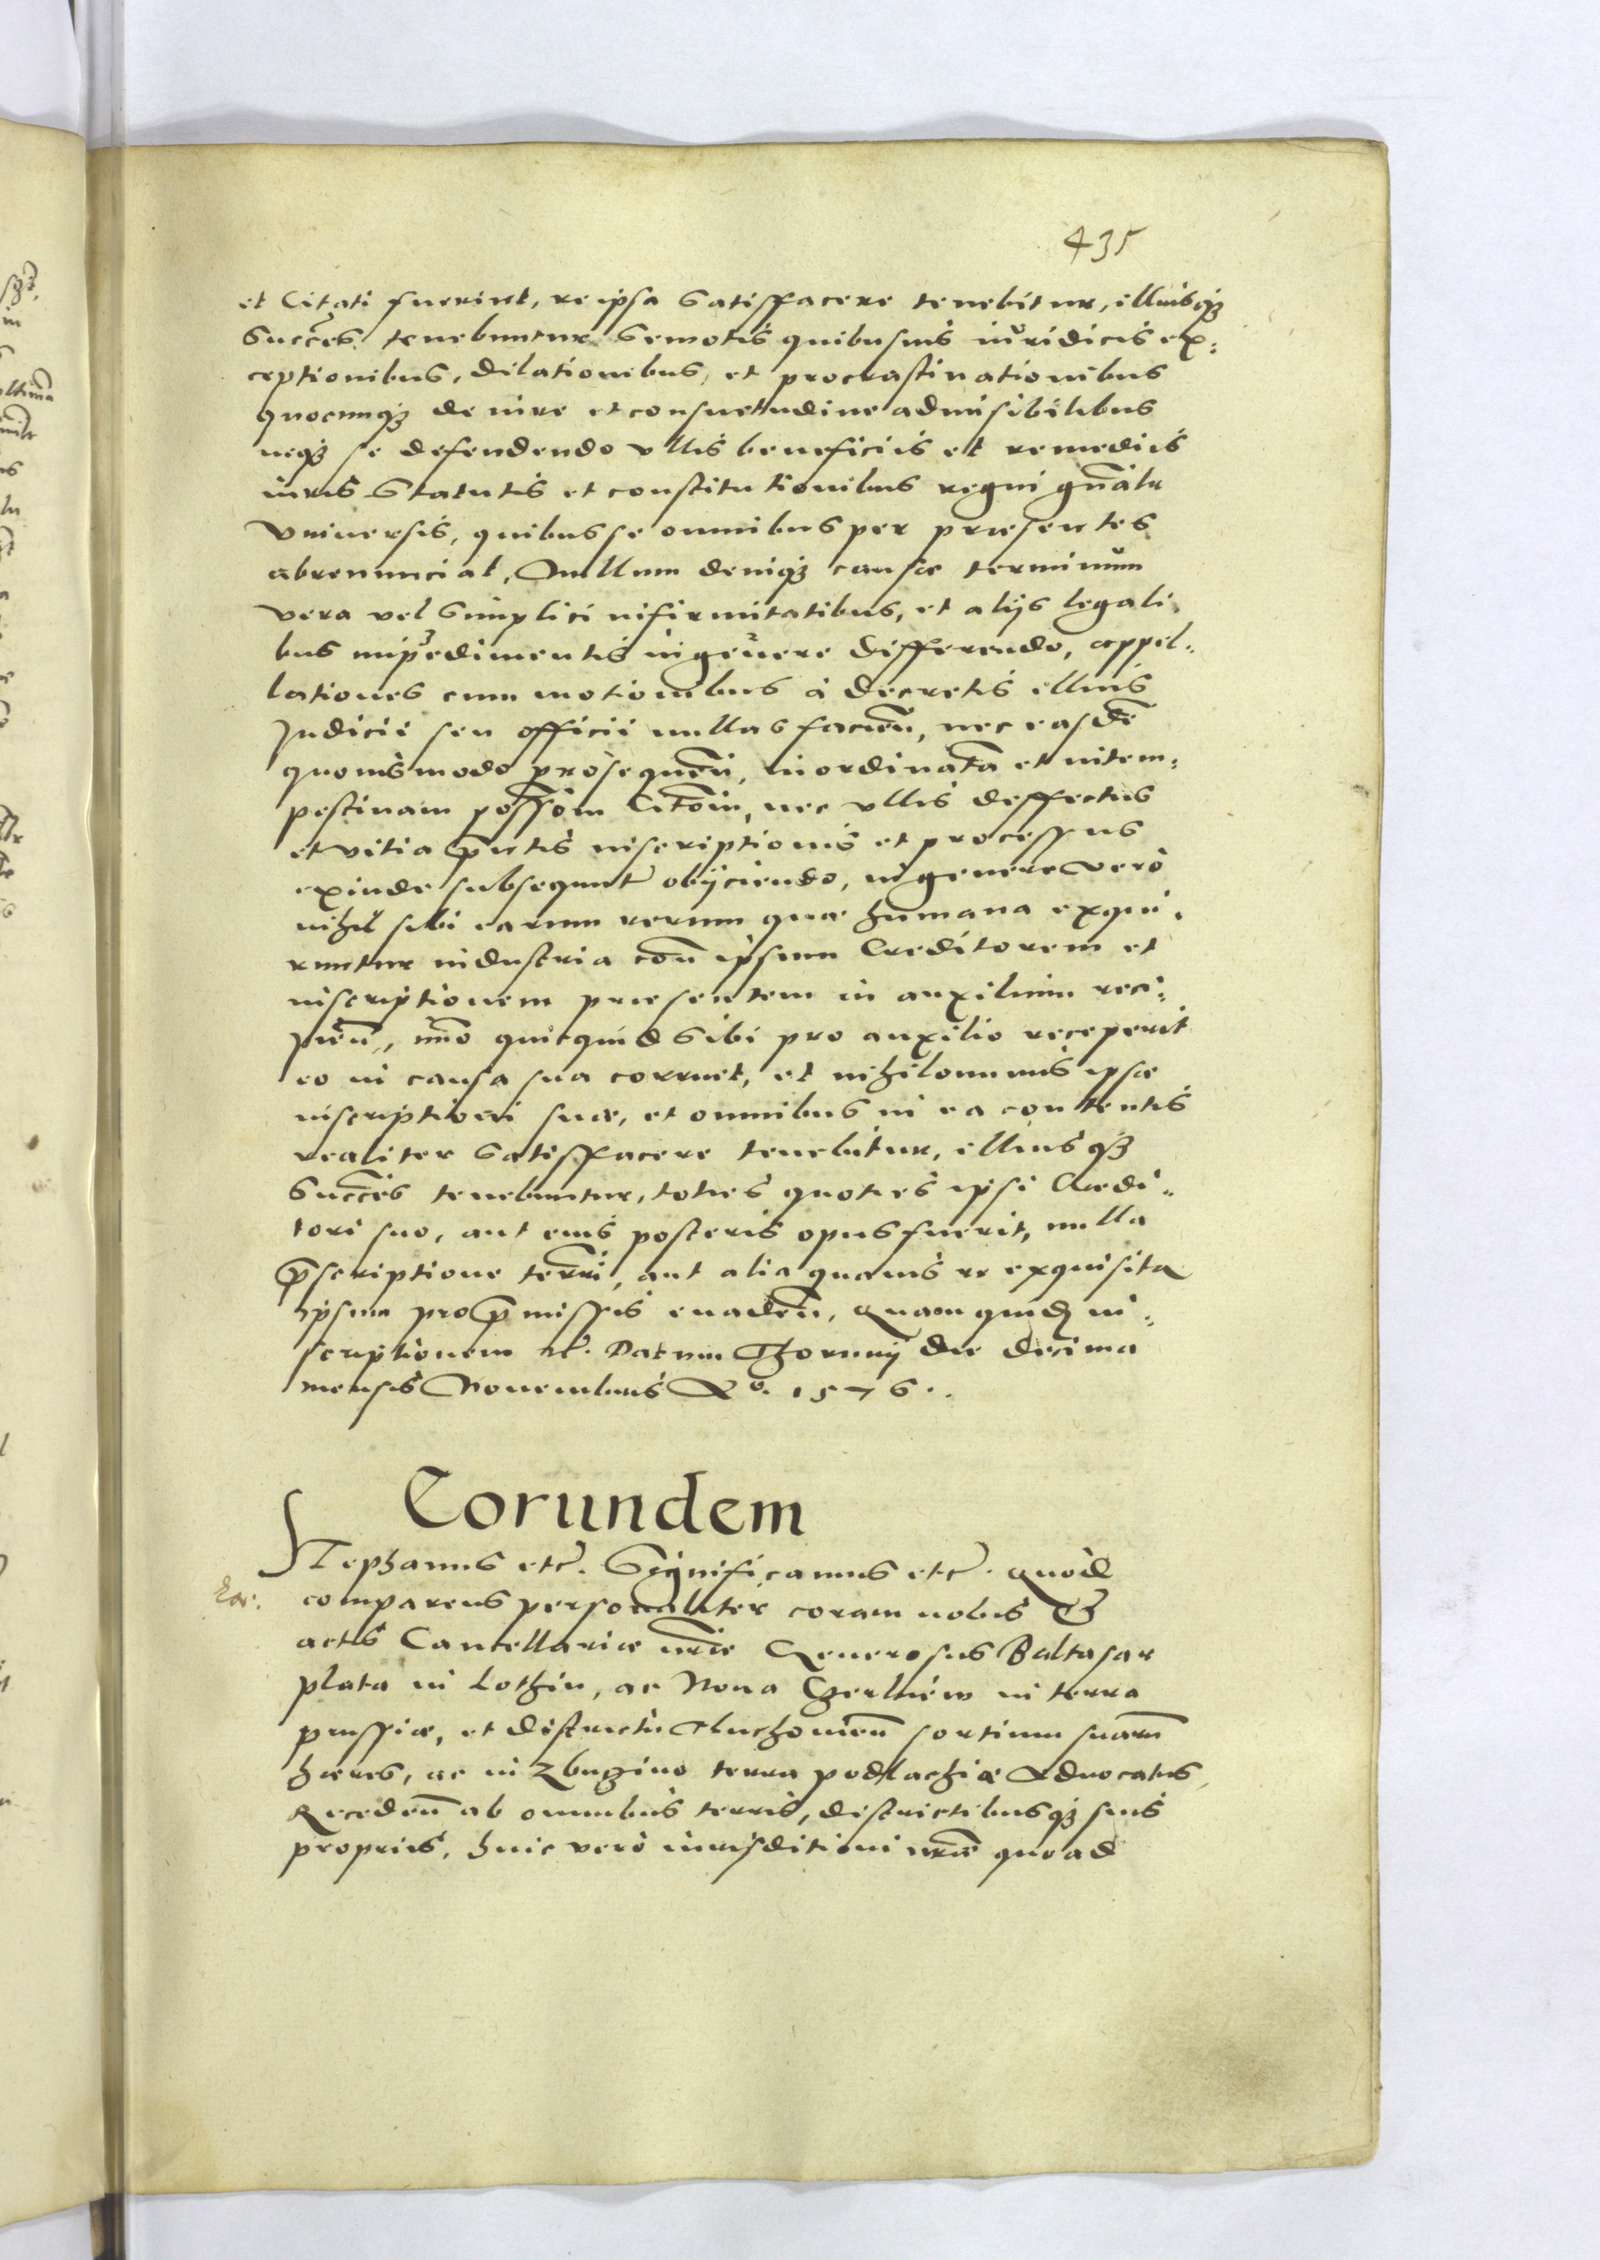 435
et Citati fuerint, re ipsa satisffacere tenebitur, illiusq3
Succes tenebuntur semotis quibusuis iuridicis ex=
ceptionibus, dilationibus, et procrastinationibus
quocunq3 de iure et consuetudine admisibilibus
neq3 se defendendo vllis beneficiis et remediis
iuris Statutis et constitutionibus regni gnalr
Vniuersis, quibus se omnibus per præsentes
abrenunciat, Nullum deniq3 causæ terminum
vera vel simplici infirmitatibus, et alijs legali=
bus impedimentis in genere differendo, appel=
lationes cum motionibus à decretis illius
Judicii seu officii nullas facien, nec easdē
quouismodo prosequen, inordinatā et intem=
pestiuam possom Citōm, nec vllis deffectus
et vitia pntis inscriptionis et processus
exinde subsequent obijciendo, in genere verò
nihil sibi earum rerum quæ humana exqui=
runtur industria con ipsum Creditorem et
inscriptionem præsentem in auxilium reci=
pien, imo quicquid sibi pro auxilio receperit
eo in causa sua corruet, et nihilominus ipsæ
inscriptioni suæ, et omnibus in ea contentis
realiter satisffacere tenebitur, illiusq3
Succes tenebuntur, toties quoties ipsi Credi=
tori suo, aut eius posteris opus fuerit, nulla
pscriptione terri, aut alia quauis re exquisita
ipsum pro pmissis euaden, quam quid in=
scriptionem etc. Datum Thorunij die decima
mensis Nouembris Ao. 1576.
Eorundem
Stephanus etc. Significamus etc. quod
comparens personaliter coram nobis et
actis Cancellariæ nræ Generosus Baltasar
plata in Lothin, ac Noua Czerkiew in terra
prussiæ, et districtu Tluchouien sortium suarū
hæres, ac in Zbuzino terra podlachiæ Aduocatus,
Receden ab omnibus terris, districtibusq3 suis
propriis, huic verò iurisditioni nræ quoad